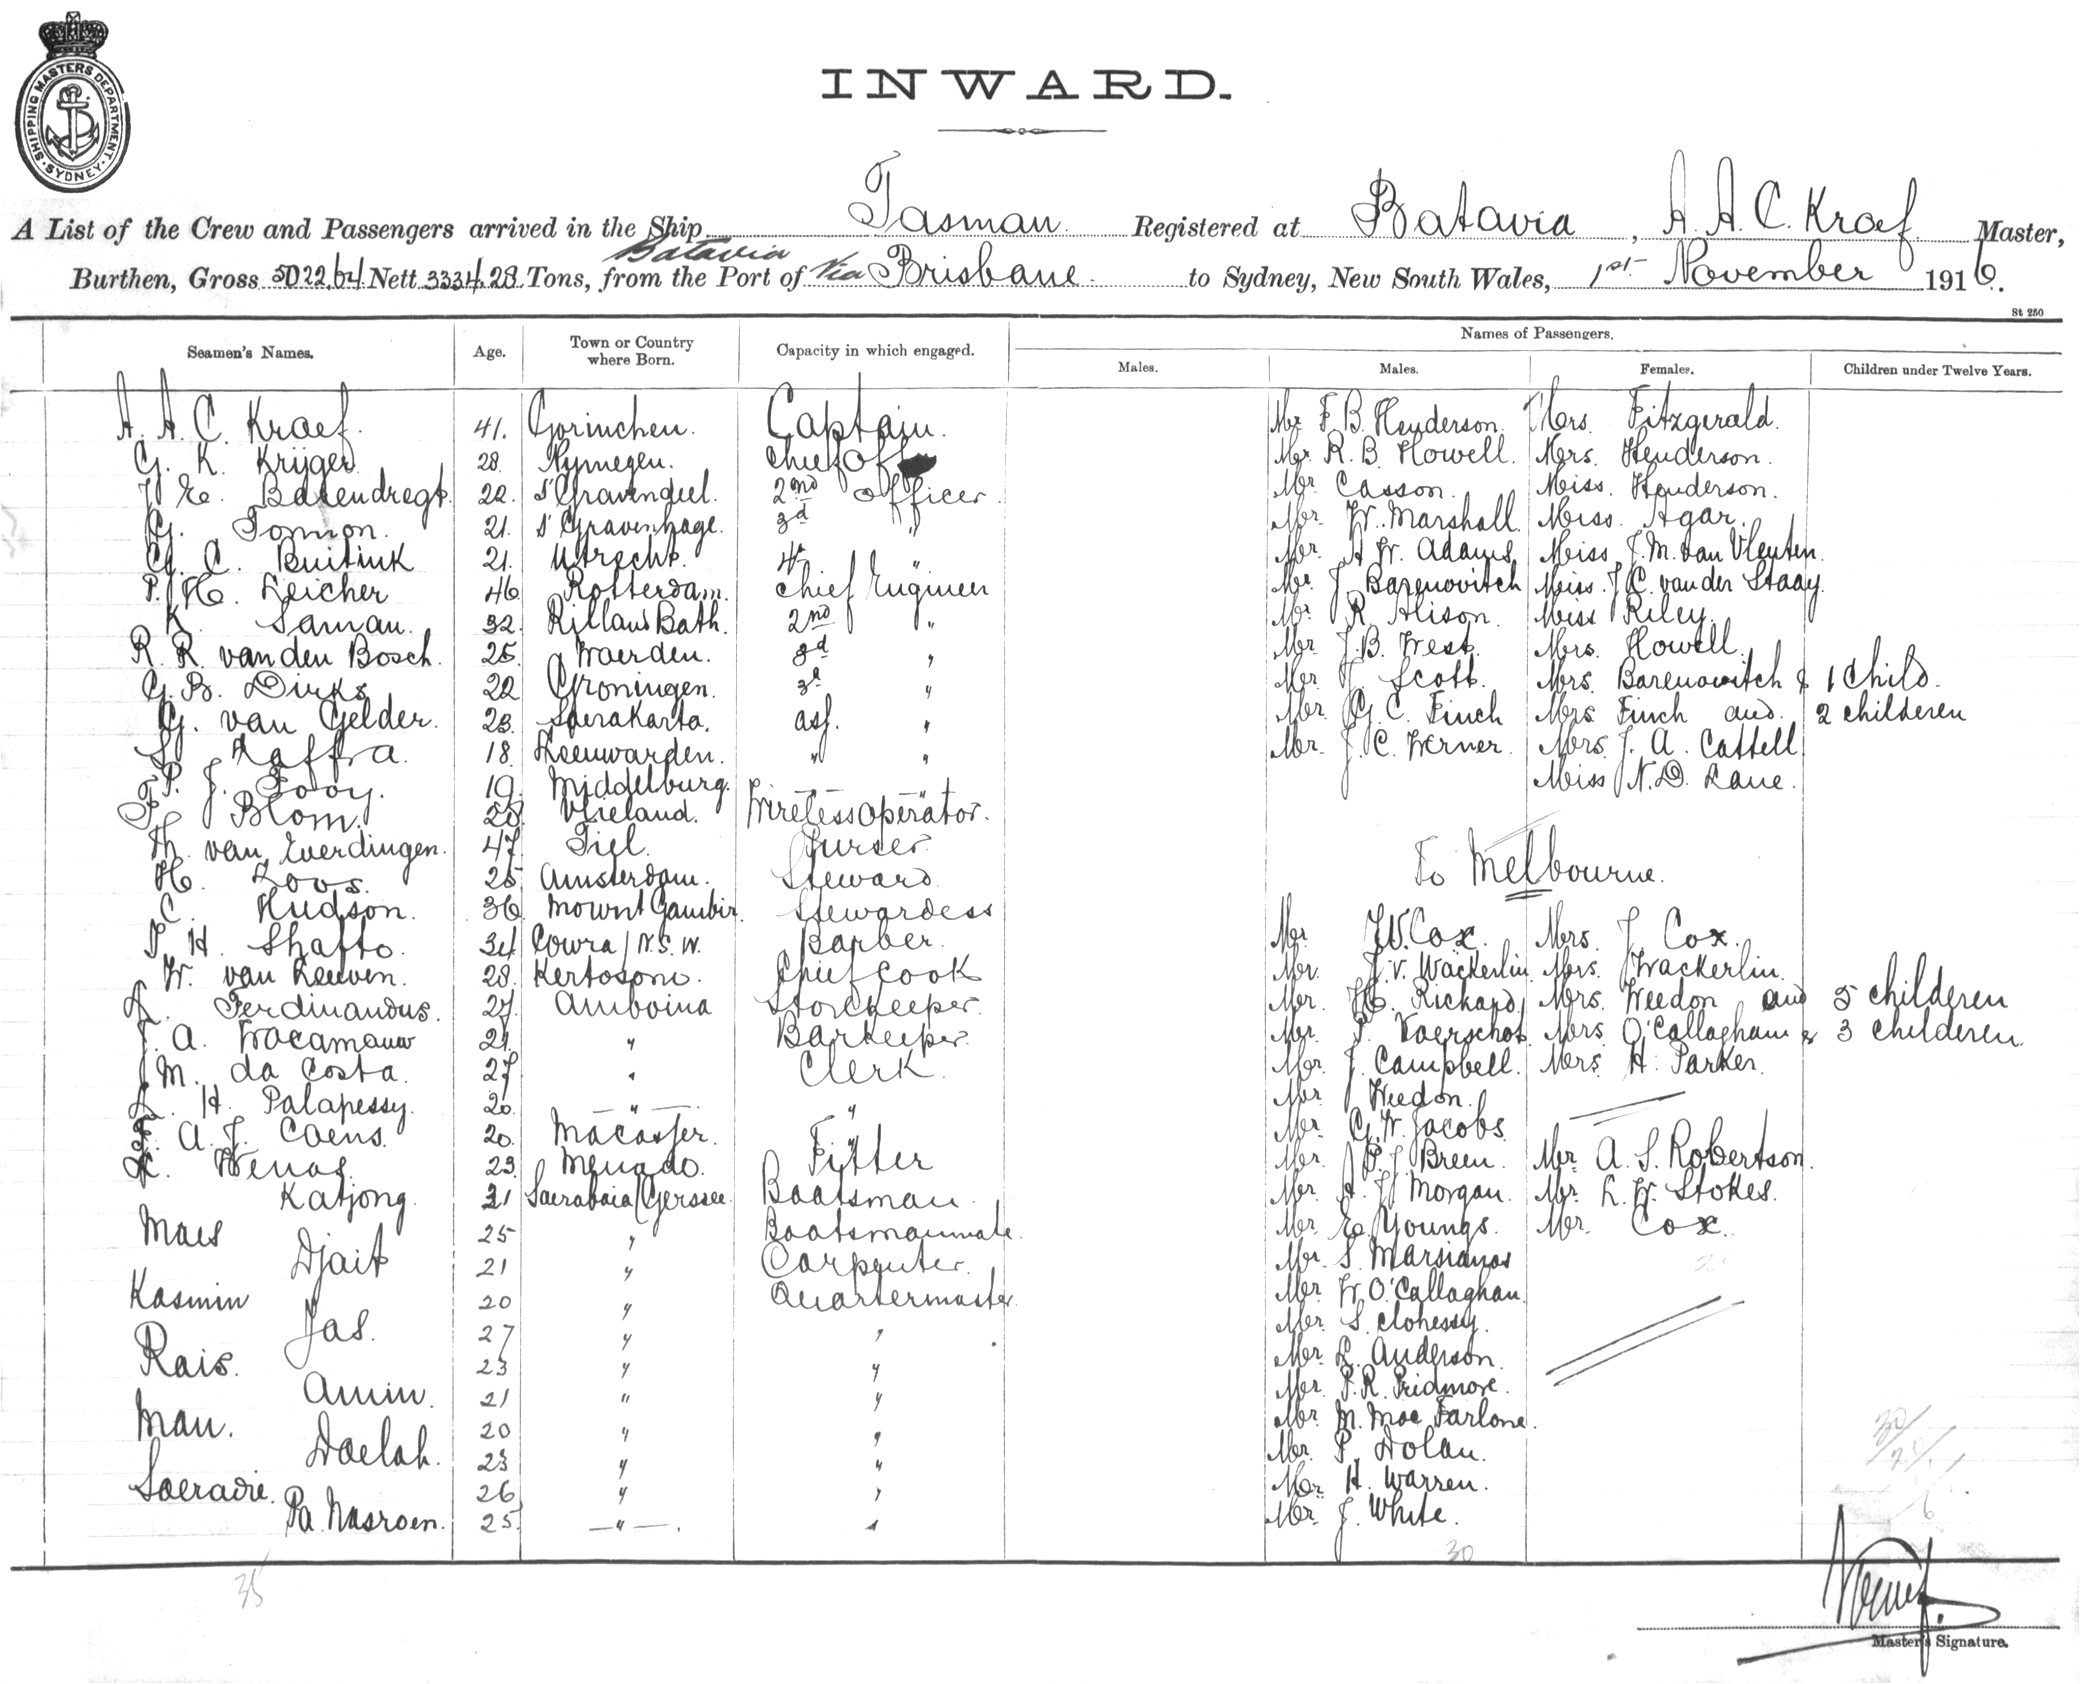 SHIPPING MASTERS DEPARTMENT · SYDNEY ·
INWARD.
A List of the Crew and Passengers arrived in the Ship Tasman Registered at Batavia, A. A. C. Kraef Master,
Batavia
Burthen, Gross 5022,64 Nett 3334,28 Tons, from the Port of via Brisbane to Sydney, New South Wales, 1st November 1916.
St 250
Seamen's Names. Age. Town or Country where Born. Capacity in which engaged. Names of Passengers.
Males. Males. Females. Children under Twelve Years.
A. A. C. Kraef. 41. Gorinchen. Captain. Mr F. B. Henderson. Mrs. Fitzgerald.
G. K. Krijger 28 Nymegen. Chief Off Mr. R. B. Howell. Mrs. Henderson.
J. E. Barendregt. 22. s'Gravendeel. 2nd officer. Mr Casson. Miss. Henderson.
G. Tonnon. 21. s'Gravenhage. 3d " Mr. W. Marshall. Miss. Agar.
G. C. Buitink 21. Utrecht. 4th " Mr. A. W. Adams Miss J. M. van Vleuten.
P. H. Leicher 46 Rotterdam. Chief Engineer Mr J. Barenovitch Miss. J. C. van der Staay.
K. Saman. 32. Rilland Bath. 2nd " Mr R. Alison. Miss Riley.
R. R. van den Bosch. 25. Woerden. 3d " Mr. J. B. West. Mrs. Howell.
G. B. Dirks 22 Groningen. 3d " Mr J Scott. Mrs. Barenovitch & 1 child.
G. van Gelder. 23. Soerakarta. ass. " Mr G. C. Finch Mrs. Finch and. 2 childeren
S. Zaffra. 18. Leeuwarden. " " Mr. J. C. Werner. Mrs. J. A. Cattell.
P. J. Fooy. 19. Middelburg. " Miss N. D. Lane.
F. Blom. 20. Vlieland. Wireless operator.
Th. van Everdingen. 47 Tiel. Purser.
H. Loos. 25 Amsterdam. Steward. To Melbourne.
C. Hudson. 36 Mount Gambir. Stewardess
T. H. Shafto. 34 Cowra / N.S.W. Barber. Mr J. W. Cox. Mrs. J. Cox.
W. van Leuven. 28. Kertosono. Chief cook Mr. J. V. Wackerlin Mrs. Wackerlin.
A. Ferdinandus. 27. Amboina Storekeeper. Mr. H. Rickard Mrs. Weedon and 5 childeren
J. A. Wacamouw 21. " Barkeeper. Mr. P. Voerschot. Mrs O'Callagham & 3 childeren.
J. M. da Costa. 27 " Clerk. Mr. J. Campbell. Mrs. H. Parker.
A. H. Palapessy. 20. " " Mr Weedon.
F. A. J. Coens. 20. Macasser. " Mr. G. W. Jacobs
K. Wenas. 23. Menado. Fitter Mr. P. J. Breen. Mr. A. S. Robertson.
Katjong. 31 Soerabaia/Gerssee. Boatsman. Mr. A. J. Morgan. Mr. L. W. Stokes.
Maes 25 " Boatsmanmate. Mr. E. Youngs. Mr. Cox.
Djait 21 " Carpenter. Mr. S. Marsianos
Kasmin 20 " Quartermaster. Mr. W. O'Callaghan.
Jas. 27 " " Mr. S. Clohessy.
Rais. 23 " " Mr. L. Anderson.
Amin. 21 " " Mr. P. R. Pridmore.
Man. 20 " " Mr. M. Mac Farlone.
Doelah. 23 " " Mr. P. Dolan.
Soeradie. 26 " " Mr. H. Warren.
Pa Nasroen. 25. " " Mr. J. White.
30
35
Master's Signature.